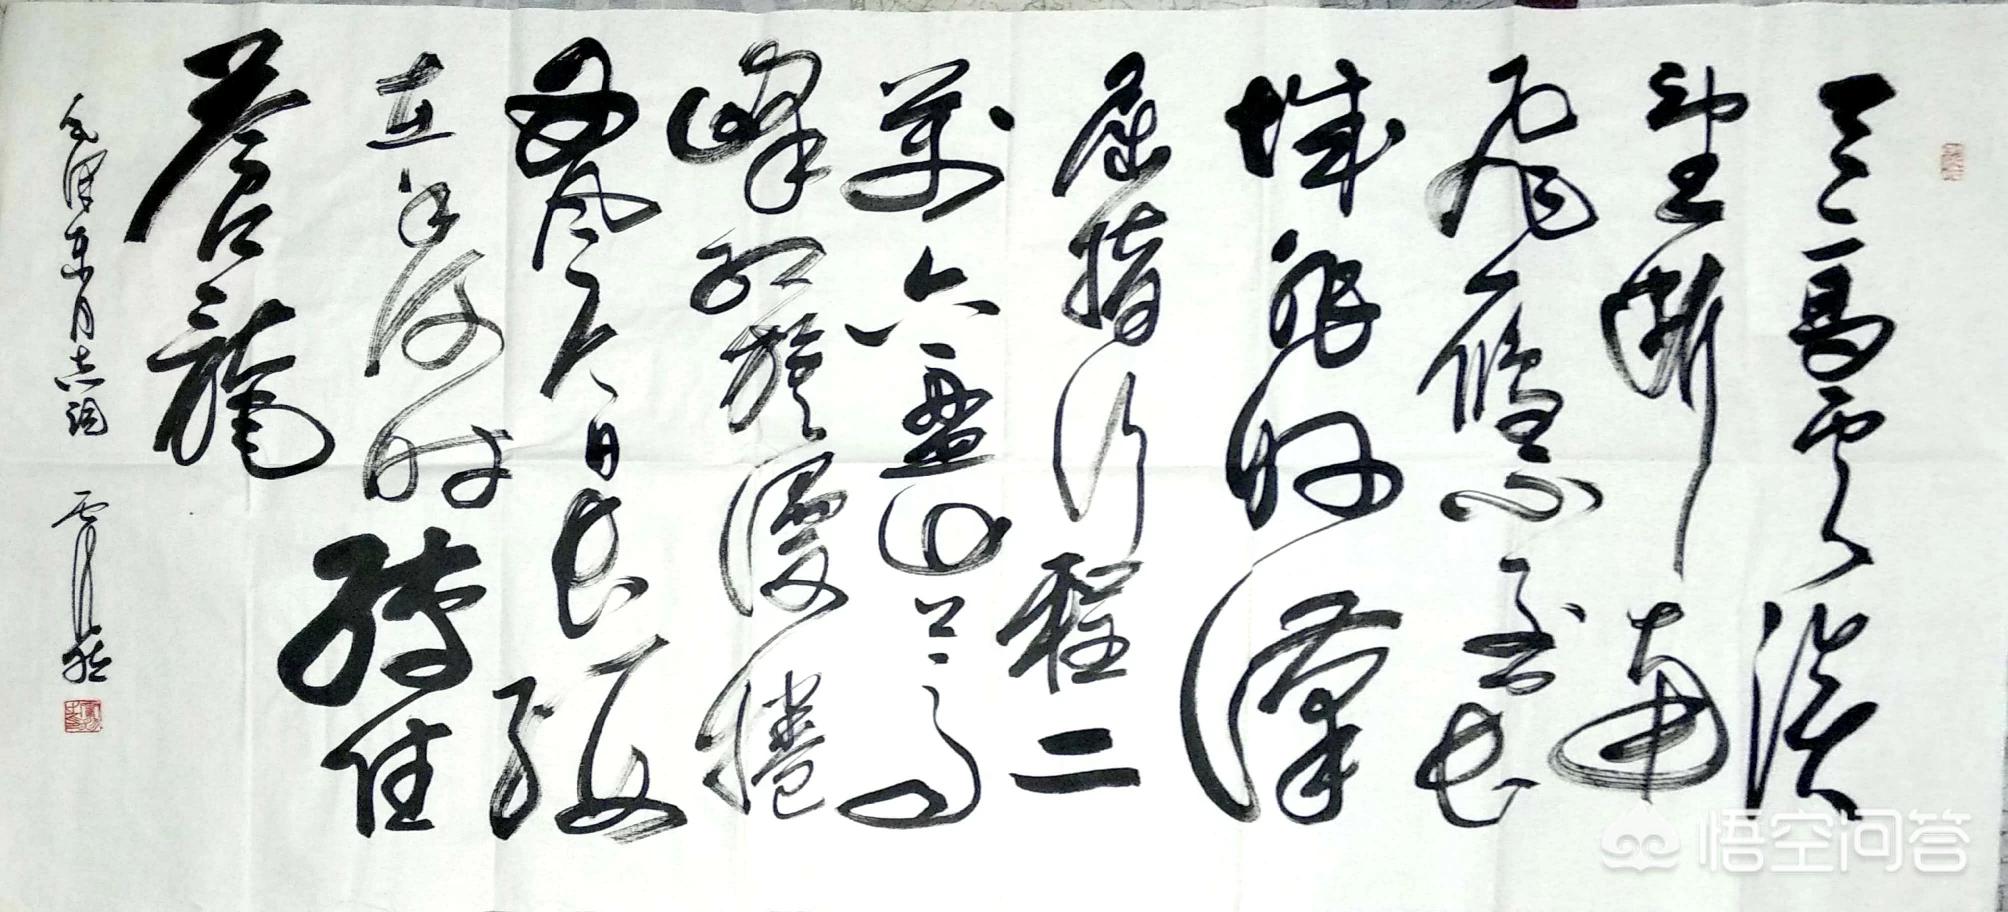 天高云淡
望断南
飛雁不到长
城非好漢
屈指行程二
萬六盘山上高
峰红旗漫捲
西風今日长缨
在手何时缚住
苍龍
毛泽东同志词
悟空问答